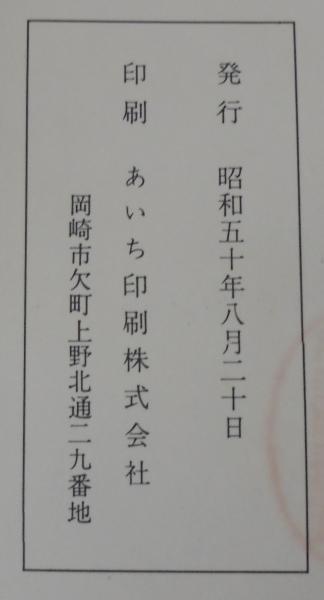 発行　昭和五十年八月二十日
印刷　あいち印刷株式会社
岡崎市欠町上野北通二九番地